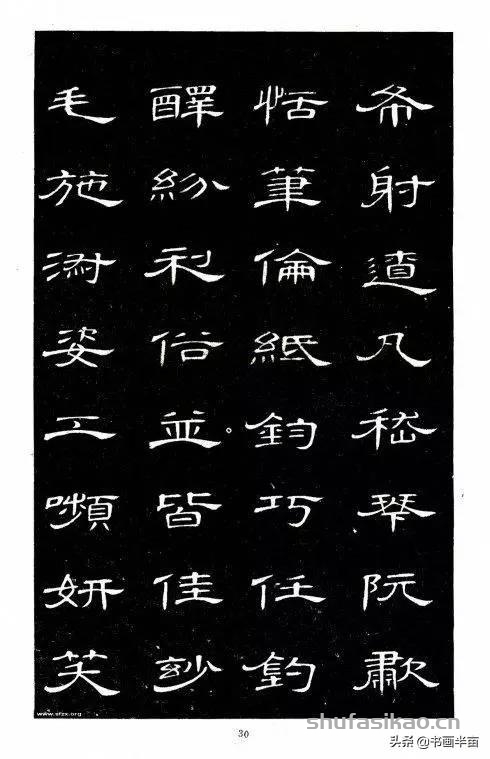 布射遼丸嵇琴阮歗
恬筆倫紙鈞巧任釣
醳紛利俗並皆佳玅
毛施淑姿工嚬妍笑
www.sfzx.org
30
shufasikao.cn
头条@书画半亩